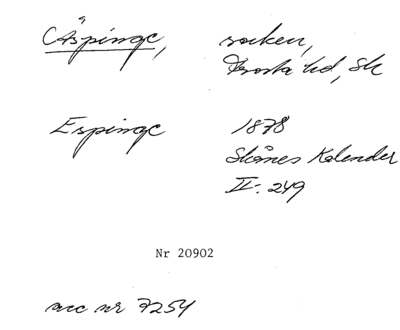 (Äspinge, socken,
Frosta hd, Sk
Espinge 1878
Skånes Kalender
II: 249
Nr 20902
acc nr 7254